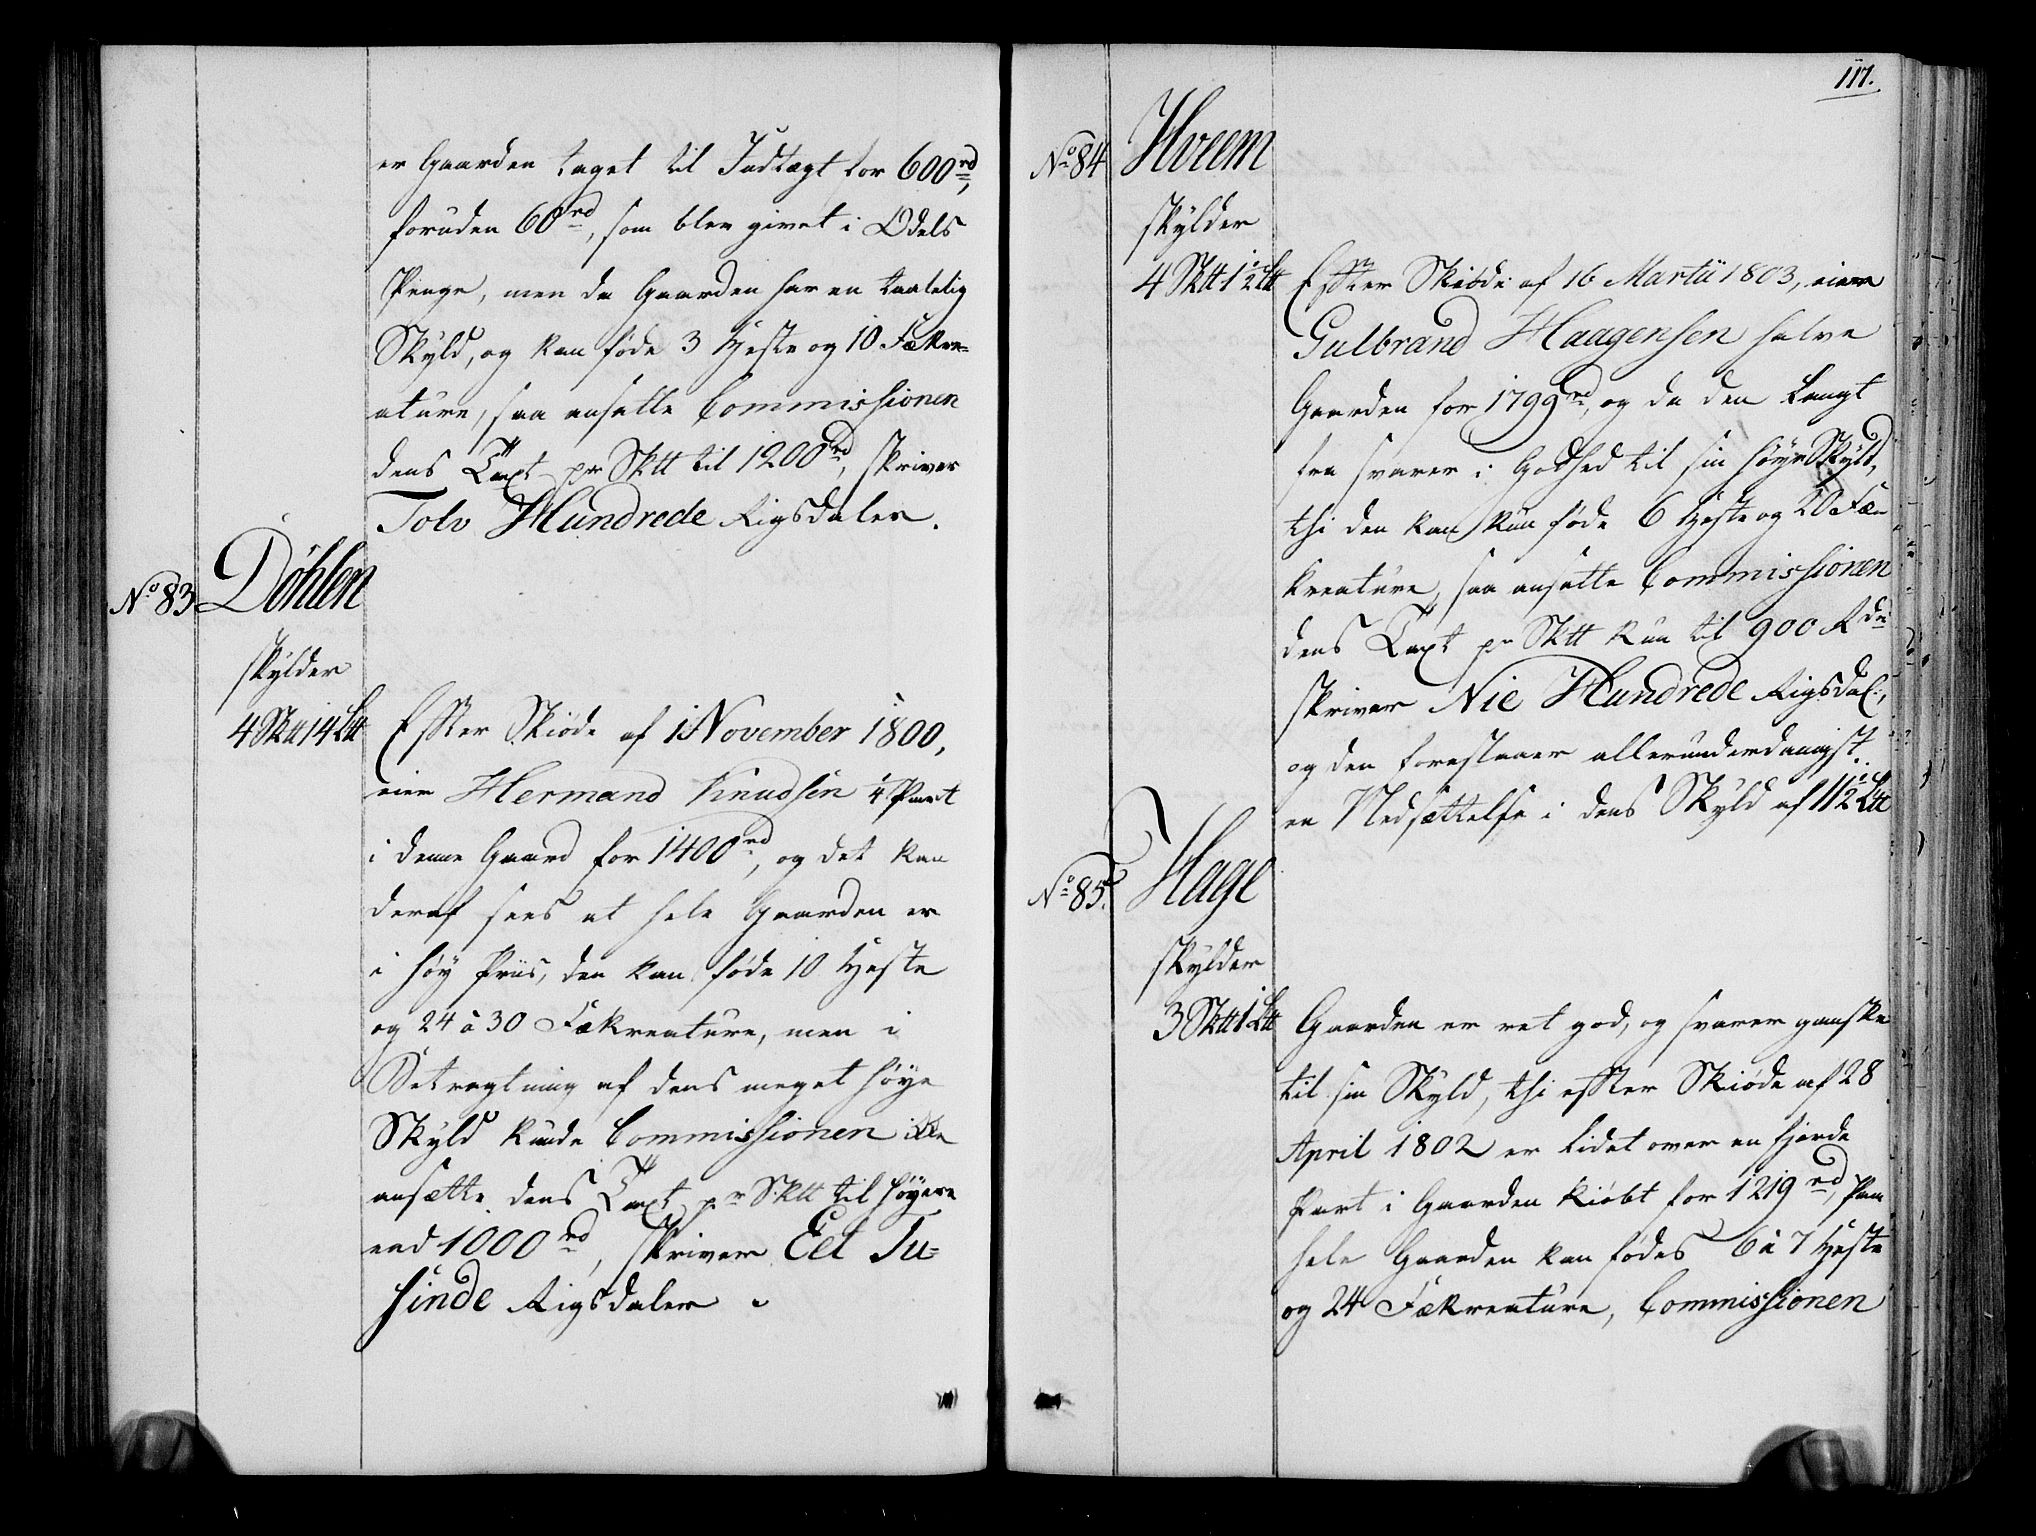 er Gaarden taget til Indtægt for 600rd,
foruden 60rd, som blev givet i Odels
Penge, men da Gaarden har en taalelig
Skyld, og kan føde 3 Heste og 10 Fækre=
ature, saa ansatte Commissionen
dens Taxt pr Sktt til 1200rd, skriver
Tolv Hundrede Rigsdaler.
No 83 Döhlen
skylder
4 Sktt 14 Ltt
Efter Skiøde af 1 November 1800,
eier Hermand Knudsen 1/4 Part
i denne Gaard for 1400rd, og det kan
deraf sees at hele Gaarden er
i høy Priis, den kan føde 10 Heste
og 24 à 30 Fækreature, men i
Betragtning af dens meget høye
Skyld kunde Commissionen ikke
ansætte dens Taxt pr Sktt til høyere
end 1000rd, skriver Eet Tu=
sinde Rigsdaler
117.
No 84 Hveem
skylder
4 Sktt 1 1/2 Ltt
Efter Skiøde af 16 Martii 1803, eier
Gulbrand Haagensen halve
Gaarden for 1799rd, og da den langt
fra svarer i Godhed til sin høye Skyld,
thi den kan kun føde 6 Heste og 20 Fæ-
kreature, saa ansatte Commissionen
dens Taxt pr Sktt kun til 900 Rdr
skriver Nie Hundrede Rigsdal:,
og den foreslaaer allerunderdanigst
en Nedsættelse i dens Skyld af 11 1/2 Ltt
No 85. Hage
skylder
3 Sktt 1 Ltt
Gaarden er ret god, og svarer ganske
til sin Skyld, thi efter Skiøde af 28
April 1802 er lidet over en fjerde
Part i Gaarden kiøbt for 1219rd, Paa
hele Gaarden kan fødes 6 à 7 Heste
og 24 Fækreature, Commissionen